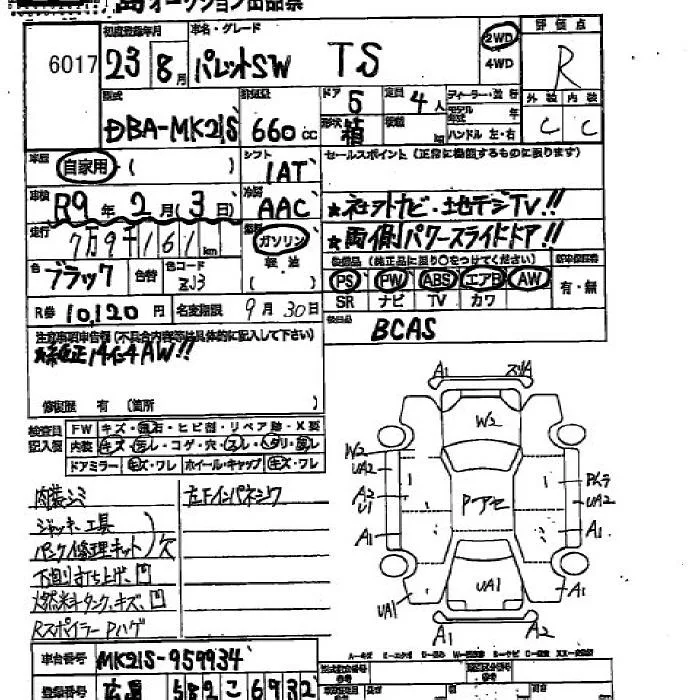 オークション出品票
6017
初度登録年月 車名・グレード
23 8月 パレットSW TS
2WD
4WD
評価点
R
型式 排気量 ドア 5 定員 4人
DBA-MK21S 660cc 形状 箱
ディーラー・並行
モデル年式 年
ハンドル 左・右
外装 内装
C C
車歴 自家用 ( )
シフト
IAT
セールスポイント (正常に機能するものに限ります)
車検 R9年2月(3日)
冷房
AAC
★社外ナビ・地デジTV!!
走行 7万9千161km
燃料 ガソリン
軽油
( )
★両側パワースライドドア!!
色 ブラック 色替 色コード ZJ3
装備品 (純正品に限り○をつけてください)
PS PW ABS エアB AW
SR ナビ TV カワ
有・無
R券 10,120円 名変期限 9月30日
後日品 BCAS
注意事項申告欄 (不具合内容等は具体的に記入して下さい)
純正14インチAW!!
修復歴 有 (箇所 )
検査員記入欄
FW キズ・飛石・ヒビ割・リペア跡・X要
内装 キズ・汚レ・コゲ・穴・スレ・ヘタリ・剥レ
ドアミラー キズ・ワレ ホイール・キャップ キズ・ワレ
内装シミ 左Fインパネシワ
ジャッキ、工具
パンク修理キット 欠
下廻り打ち上げ、凹
燃料タンク、キズ、凹
Rスポイラー Pハゲ
A1
W2
W2
UA2
A2
U1
A1
Pアセ
UA2
A1
UA1
UA1
A1
A1
A2
車台番号 MK21S-959934
登録番号 広島 582 こ 6932